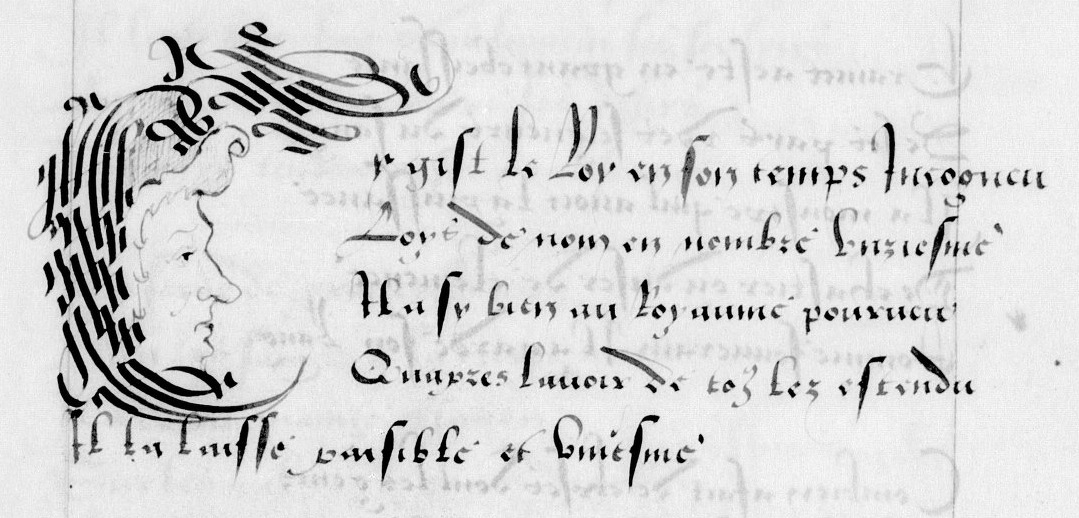 Cy gist le Roy en son temps Incogneu
Loys de nom en nombre vnziesme
Il a sy bien au Royaume pourueu
Quapres lauoir de toz lez estendu
Il la laisse paisible et vniesme